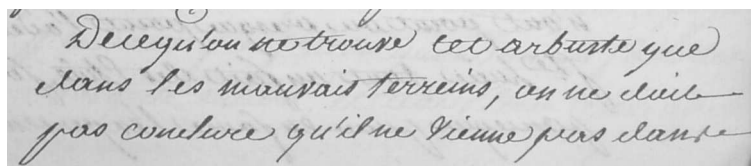 De ce qu'on ne trouve cet arbuste que
dans les mauvais terreins, on ne doit
pas conclure qu'il ne vienne pas dans